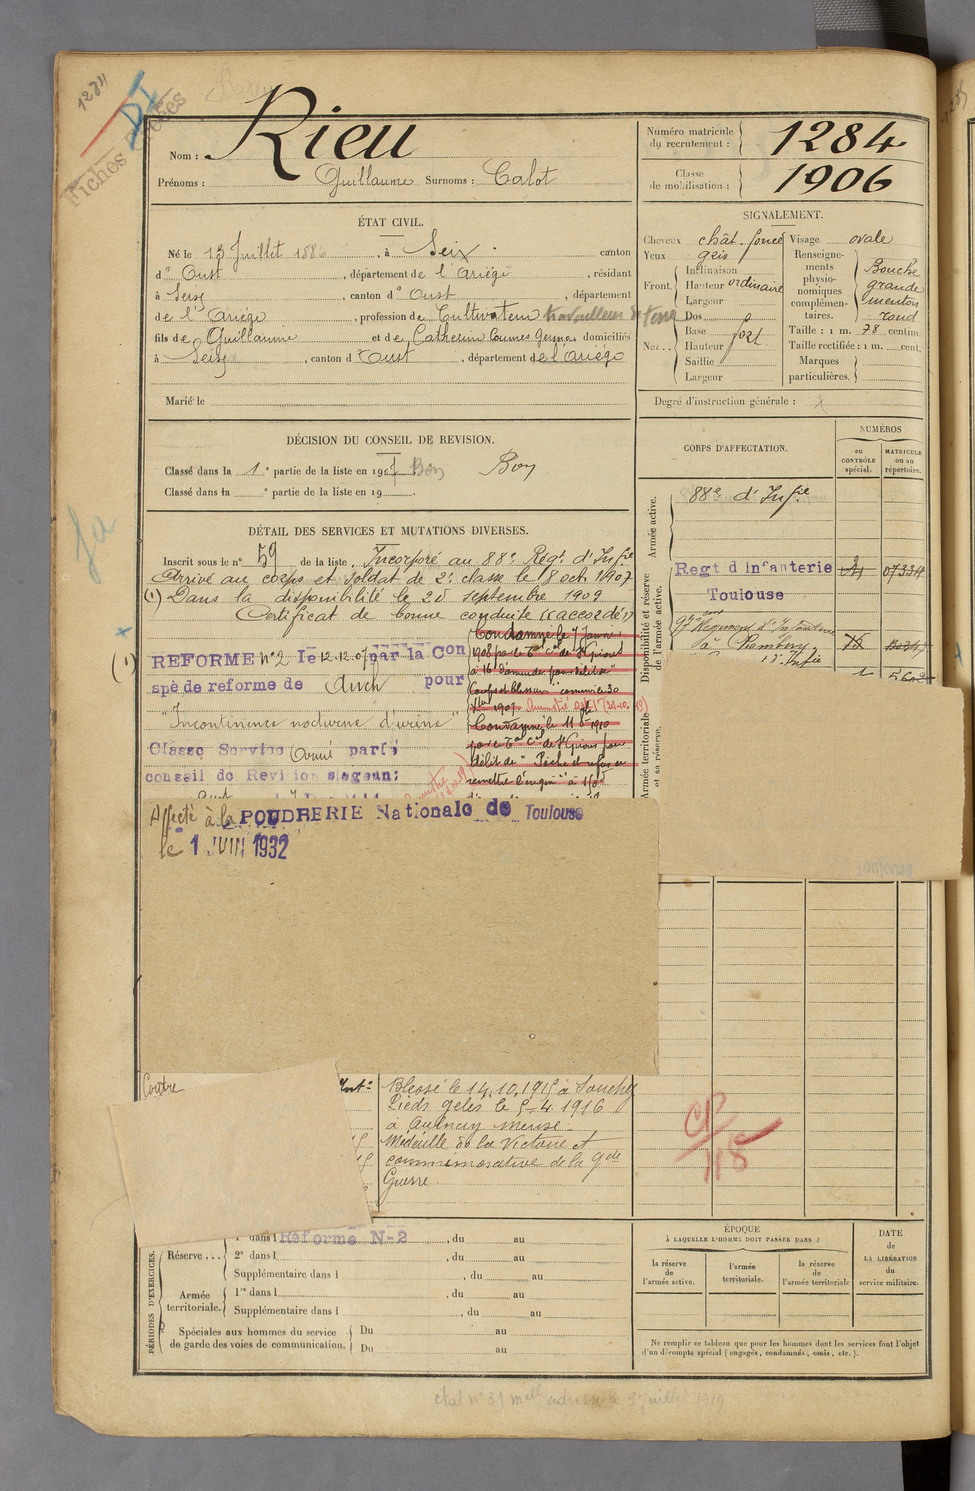 1284
DI
Fiches
Nom : Rieu
Prénoms : Guillaume Surnoms : Calot
Numéro matricule du recrutement : 1284
Classe de mobilisation : 1906
ÉTAT CIVIL.
Né le 13 Juillet 1886, à Seix. canton
d' Oust, département de l'Ariège, résidant
à Seix, canton d' Oust, département
de l'Ariège, profession de Cultivateur travailleur de terre
fils de Guillaume et de Catherine Coumes Germa, domiciliés
à Seix, canton d'Oust, département de l'Ariège
Marié le
SIGNALEMENT.
Cheveux chât. foncé
Yeux gris
Front. Inclinaison
Hauteur ordinaire
Largeur
Nez.. Dos
Base fort
Hauteur
Saillie
Largeur
Visage ovale
Renseignements physionomiques complémentaires. Bouche grande menton rond
Taille : 1 m. 78 centim.
Taille rectifiée : 1 m. cent.
Marques particulières.
Degré d'instruction générale :
DÉCISION DU CONSEIL DE REVISION.
Classé dans la 1e partie de la liste en 1907. Bon Bon
Classé dans la e partie de la liste en 19 .
CORPS D'AFFECTATION.
NUMÉROS
au CONTRÔLE spécial.
MATRICULE ou au répertoire.
Armée active.
88e d'Infie
Disponibilité et réserve de l'armée active.
Regt d infanterie
Toulouse
à Chambéry
Armée territoriale et sa réserve.
DÉTAIL DES SERVICES ET MUTATIONS DIVERSES.
Inscrit sous le n° 59 de la liste. Incorporé au 88e Regt d'Infie
Arrivé au corps et soldat de 2e classe le 8 octe 1907
(1) Dans la disponibilité le 25 septembre 1909
Certificat de bonne conduite (accordé)
(1) REFORME n°2 le 12.12.07 par la Con
spé de reforme de Auch pour
"Incontinence nocturne d'urine"
Classé Service Armé par le
conseil de Revision siégeant
Condamné le 7 Janvier
1908 par le Tal cel de St Girons
à 16f d'amende pour délit de
Coups et blessures commis le 30
1907 Amnistié
Condamné le 11 1910
par le Tal cel de St Girons pour
délit de "Pêche et refus de
remettre l'engin" à
Affecté à la POUDRERIE Nationale de Toulouse
le 1 JUIN 1932
Contre
Blessé le 14.10.1915 à Souchez
Pieds gelés le 5-4 1916
à Aulnay meuse.
Médaille de la Victoire et
commémorative de la Gde
Guerre.
CP/118
PÉRIODES D'EXERCICES.
Réserve... 1e dans l Réforme N-2, du au
2e dans l , du au
Supplémentaire dans l , du au
Armée territoriale. 1re dans l , du au
Supplémentaire dans l , du au
Spéciales aux hommes du service de garde des voies de communication. Du au
Du au
ÉPOQUE
À LAQUELLE L'HOMME DOIT PASSER DANS :
la réserve de l'armée active.
l'armée territoriale.
la réserve de l'armée territoriale
DATE de LA LIBÉRATION du service militaire.
Ne remplir ce tableau que pour les hommes dont les services font l'objet
d'un décompte spécial (engagés, condamnés, omis, etc.).